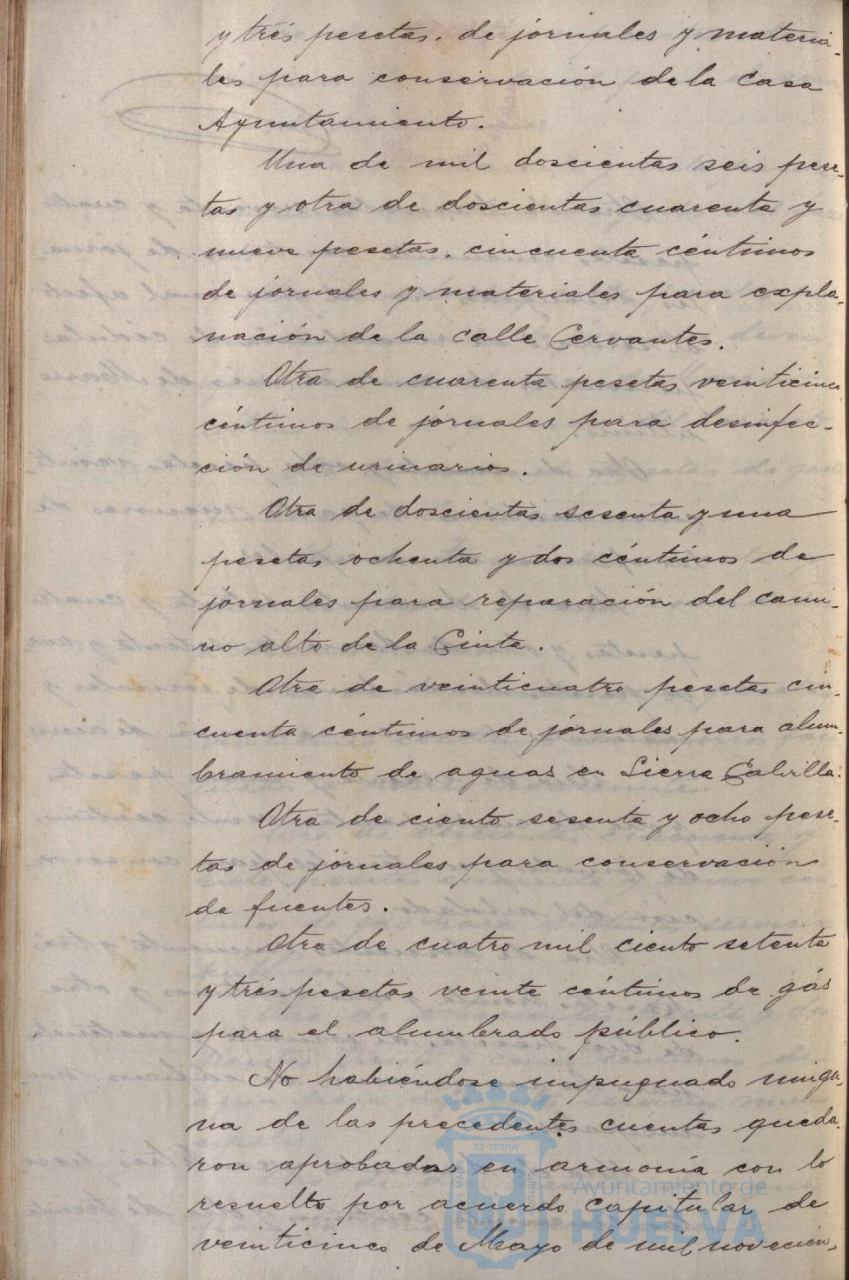 y trés pesetas. de jornales y materia-
les para conservación de la Casa
Ayuntamiento.
Una de mil doscientas seis pese-
tas y otra de doscientas cuarenta y
nueve pesetas. cincuenta céntimos
de jornales y materiales para expla-
nación de la calle Cervantes.
Otra de cuarenta pesetas veinticinco
céntimos de jornales para desinfec-
ción de urinarios.
Otra de doscientas sesenta y una
pesetas ochenta y dos céntimos de
jornales para reparación del cami-
no alto de la Cinta.
Otra de veinticuatro pesetas cin-
cuenta céntimos de jornales para alum-
bramiento de aguas en Sierra Calvilla.
Otra de ciento sesenta y ocho pese-
tas de jornales para conservación
de fuentes.
Otra de cuatro mil ciento setenta
y trés pesetas veinte céntimos de gás
para el alumbrado público.
No habiéndose impugnado ningu-
na de las precedentes cuentas queda-
ron aprobadas en armonía con lo
resuelto por acuerdo capitular de
veinticinco de Mayo de mil novecien-
Ayuntamiento de
HUELVA